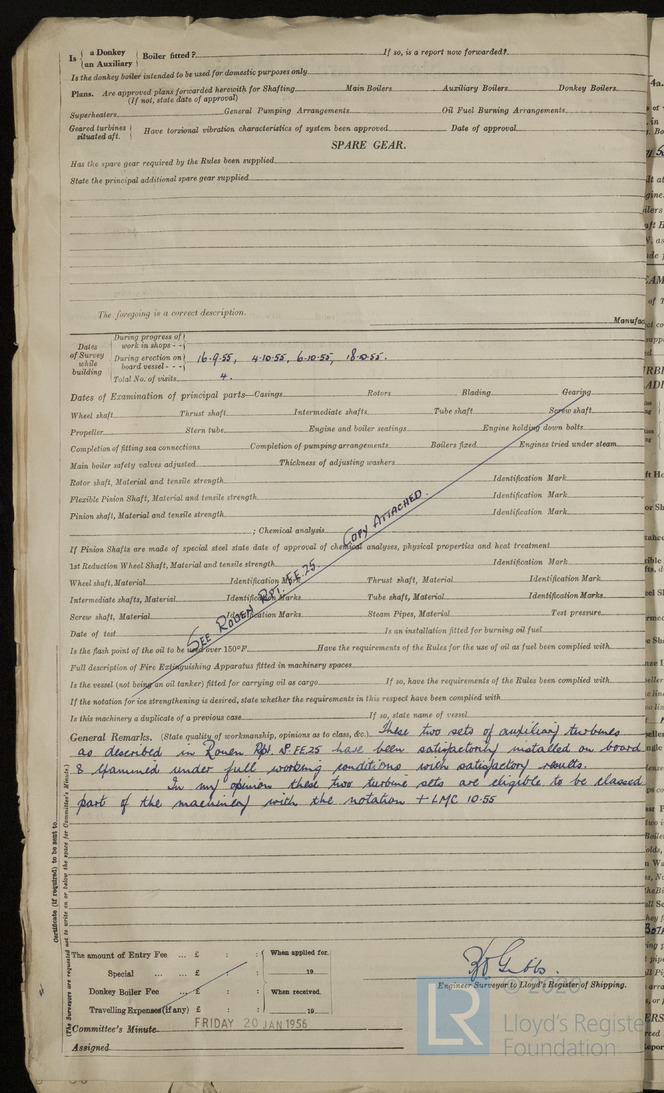 Is { a Donkey / an Auxiliary } Boiler fitted ? If so, is a report now forwarded?
Is the donkey boiler intended to be used for domestic purposes only
Plans. Are approved plans forwarded herewith for Shafting Main Boilers Auxiliary Boilers Donkey Boilers
(If not, state date of approval)
Superheaters General Pumping Arrangements Oil Fuel Burning Arrangements
Geared turbines situated aft. } Have torsional vibration characteristics of system been approved Date of approval
SPARE GEAR.
Has the spare gear required by the Rules been supplied
State the principal additional spare gear supplied
The foregoing is a correct description.
Manufac
Dates of Survey while building
During progress of work in shops - -
During erection on board vessel - - - 16-9-55, 4-10-55, 6-10-55, 18-10-55.
Total No. of visits 4.
Dates of Examination of principal parts—Casings Rotors Blading Gearing
Wheel shaft Thrust shaft Intermediate shafts Tube shaft Screw shaft
Propeller Stern tube Engine and boiler seatings Engine holding down bolts
Completion of fitting sea connections Completion of pumping arrangements Boilers fixed Engines tried under steam
Main boiler safety valves adjusted Thickness of adjusting washers
Rotor shaft, Material and tensile strength Identification Mark
Flexible Pinion Shaft, Material and tensile strength Identification Mark
Pinion shaft, Material and tensile strength Identification Mark
; Chemical analysis
SEE ROUEN RPT. F.E.25. COPY ATTACHED.
If Pinion Shafts are made of special steel state date of approval of chemical analyses, physical properties and heat treatment
1st Reduction Wheel Shaft, Material and tensile strength Identification Mark
Wheel shaft, Material Identification Mark Thrust shaft, Material Identification Mark
Intermediate shafts, Material Identification Marks Tube shaft, Material Identification Marks
Screw shaft, Material Identification Marks Steam Pipes, Material Test pressure
Date of test Is an installation fitted for burning oil fuel
Is the flash point of the oil to be used over 150°F. Have the requirements of the Rules for the use of oil as fuel been complied with
Full description of Fire Extinguishing Apparatus fitted in machinery spaces
Is the vessel (not being an oil tanker) fitted for carrying oil as cargo If so, have the requirements of the Rules been complied with
If the notation for ice strengthening is desired, state whether the requirements in this respect have been complied with
Is this machinery a duplicate of a previous case If so, state name of vessel
General Remarks. (State quality of workmanship, opinions as to class, &c.) These two sets of auxiliary turbines
as described in Rouen Rpt. No FE25 have been satisfactorily installed on board
& examined under full working conditions with satisfactory results.
In my opinion these two turbine sets are eligible to be classed
part of the machinery with the notation + LMC 10-55
Certificate (if required) to be sent to
(The Surveyors are requested not to write on or below the space for Committee's Minute.)
The amount of Entry Fee ... £ : : When applied for.
Special ... ... £ : : 19
Donkey Boiler Fee ... £ : : When received.
Travelling Expenses (if any) £ : : 19
Engineer Surveyor to Lloyd's Register of Shipping.
Committee's Minute FRIDAY 20 JAN 1956
Assigned
LR © 2020
Lloyd's Register
Foundation